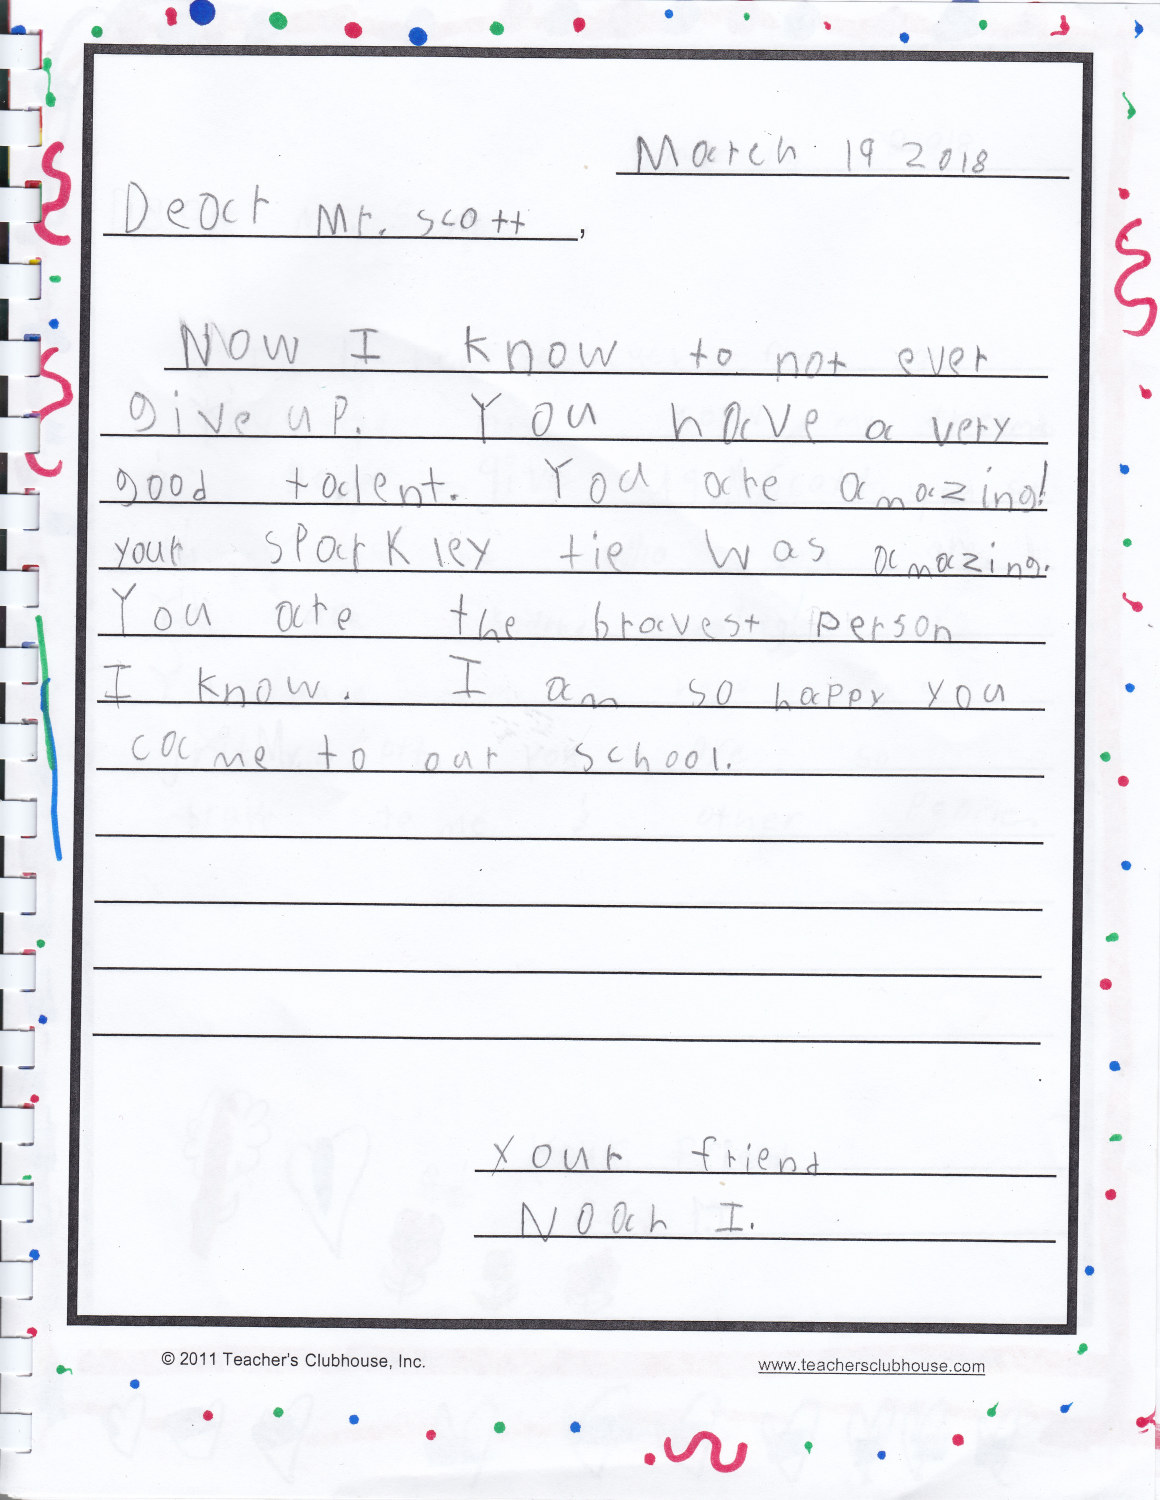 March 19 2018
Dear Mr. scott,
Now I know to not ever
give up. You have a very
good talent. You are amazing!
your sparkley tie was amazing.
You are the bravest person
I know. I am so happy you
came to our school.
Your friend
Noah I.
© 2011 Teacher's Clubhouse, Inc. www.teachersclubhouse.com